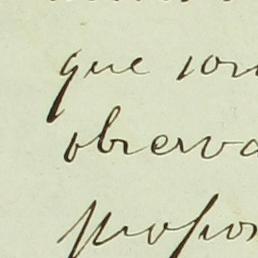 que son
observa
propor